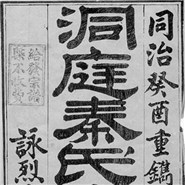 同治癸酉重鐫
洞庭秦氏
詠烈